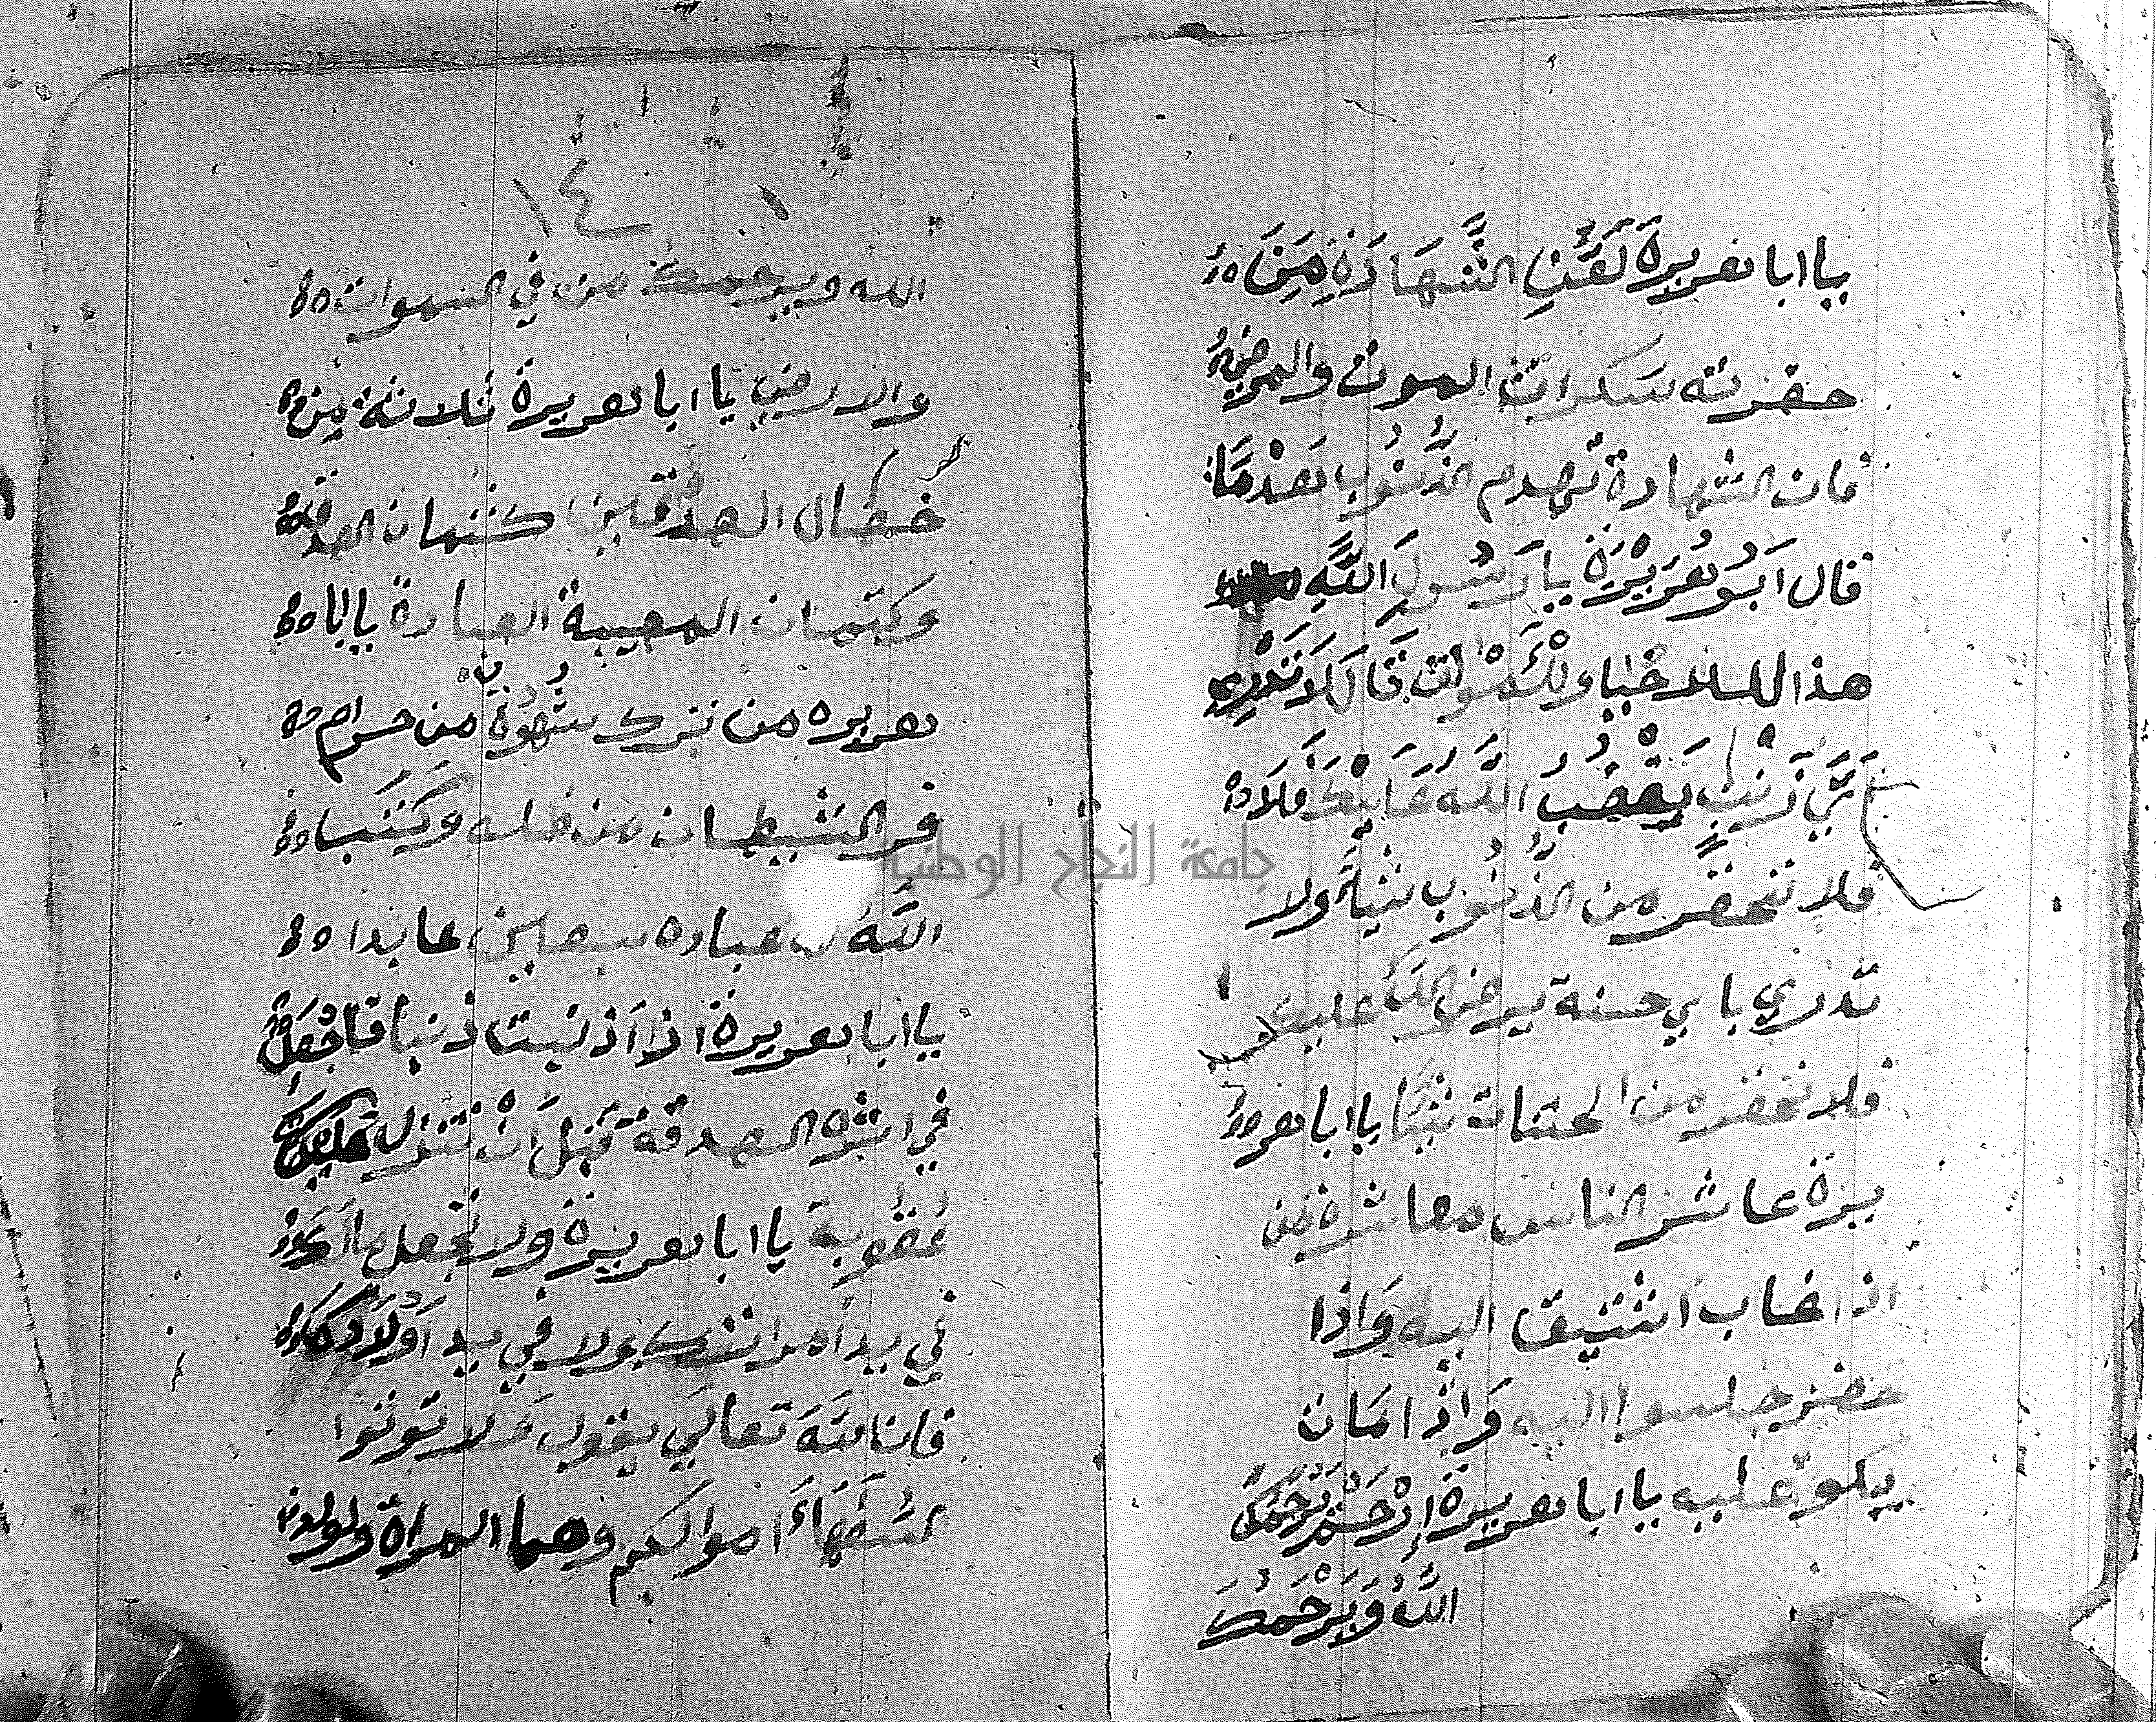 يا ابا هريرة لَقِّنِ الشَّهَادَةِ مَن
حضرته سكرات الموت والمرض
فان الشهادة تهدم الذُّنُوب هَدْمًا
قال اَبُو هُرَيْرَة يا رَسُولَ اللَّهِ
هذا للاحياء وللاموات قَالَ لاَ تَدْرِي
بَاَيِّ ذَنْبٍ يَغْضَبُ اللَّهُ عَلَيْكَ
فلا تحقر من الذُّنُوب شيأ ولا
تدري باي حسنة يرضى اللّه عليك
فلا تحقر من الحسنات شيًا يا ابا هر
يرة عاشر الناس معاشرة من
اذا غاب اشتيق اليه وَاذا
حضر جلسوا اليه وَاِذا مَات
بكو عليه يا ابا هريرة اِرْحَمْ يَرْحَمْكَ
اللّهُ وَيَرْحَمُكَ
١٤
الله ويرحمك من في السموات
والارض يا ابا هريرة ثلاثة من
خصال الصدّقين كتمان الصدقة
وكتمان المصيبة العبادة يا ابا
هريره من ترك شهْوَةً من حرام
فر الشيطان من ظله وَكَتَبَ
اللَّهُ له عباده سبعين عابدا
يا ابا هريرة اذا اَذنبت ذنبا فَاجْعَلْ
في اثره الصدقة قبلَ اَنْ تنزل عليك
عُقُوبة يا ابا هريرة ولا تجعل مالك
في يد امراتك ولا في يد اَوْلَادِكَ
فان اللَّهَ تعالَي يقول وَلا توتوا
السفَهَاءَ اموالكم وهما المراة والولد
جامعة النجاح الوطنية